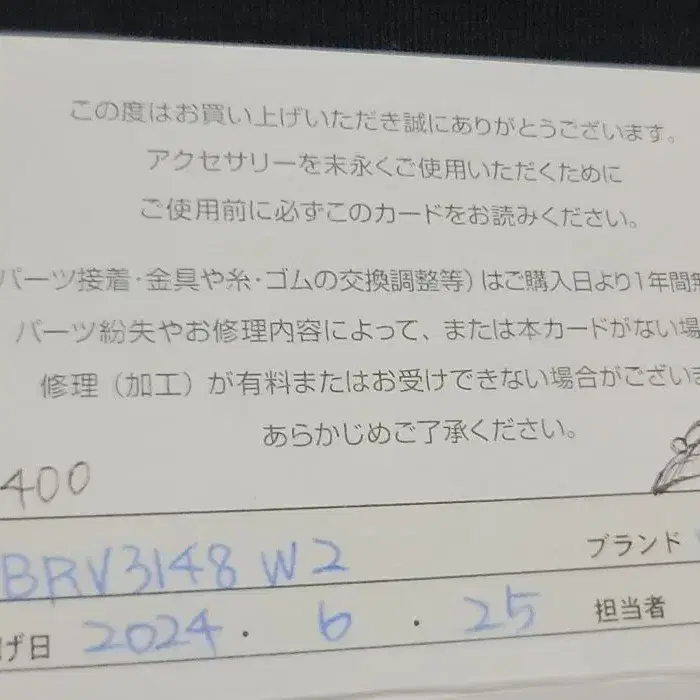 この度はお買い上げいただき誠にありがとうございます。
アクセサリーを末永くご使用いただくために
ご使用前に必ずこのカードをお読みください。
パーツ接着・金具や糸・ゴムの交換調整等)はご購入日より1年間無
パーツ紛失やお修理内容によって、または本カードがない場
修理(加工)が有料またはお受けできない場合がございま
あらかじめご了承ください。
400
BRV3148 W2 ブランド
げ日 2024.6.25 担当者